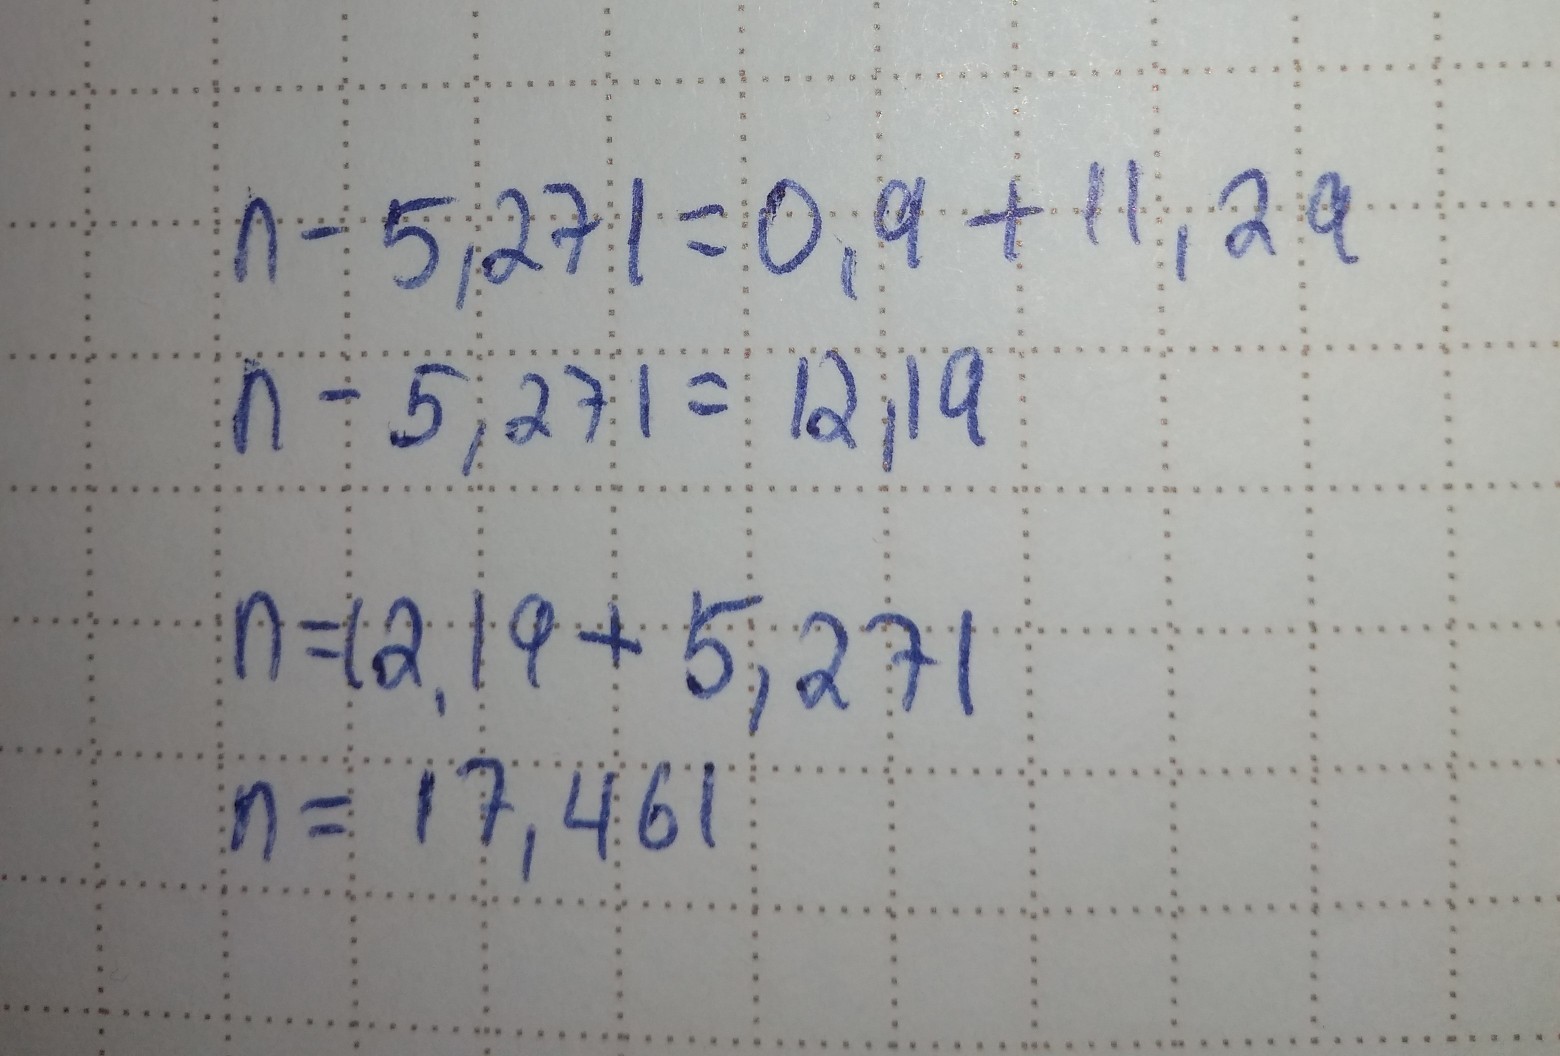 n - 5,271 = 0,9 + 11,29
n - 5,271 = 12,19
n = 12,19 + 5,271
n = 17,461